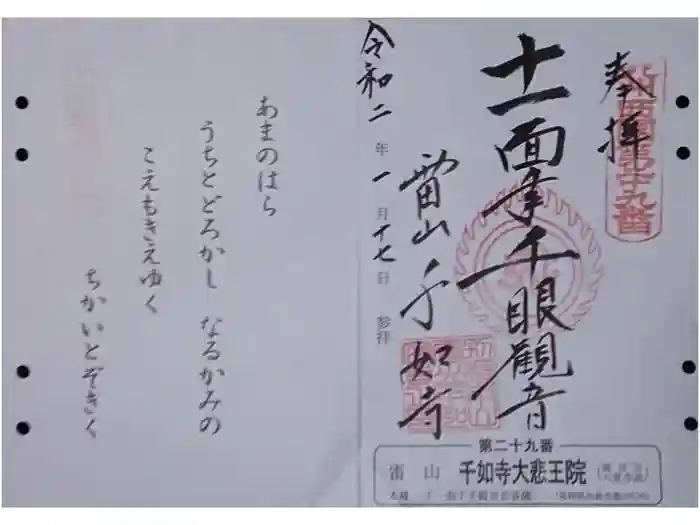 奉拝
九州西国第廿九番
十一面千手千眼観音
雷山千如寺
令和二年一月十七日 参拝
あまのはら
うちとどろかし なるかみの
こえもきえゆく
ちかいとぞきく
第二十九番
雷山 千如寺大悲王院